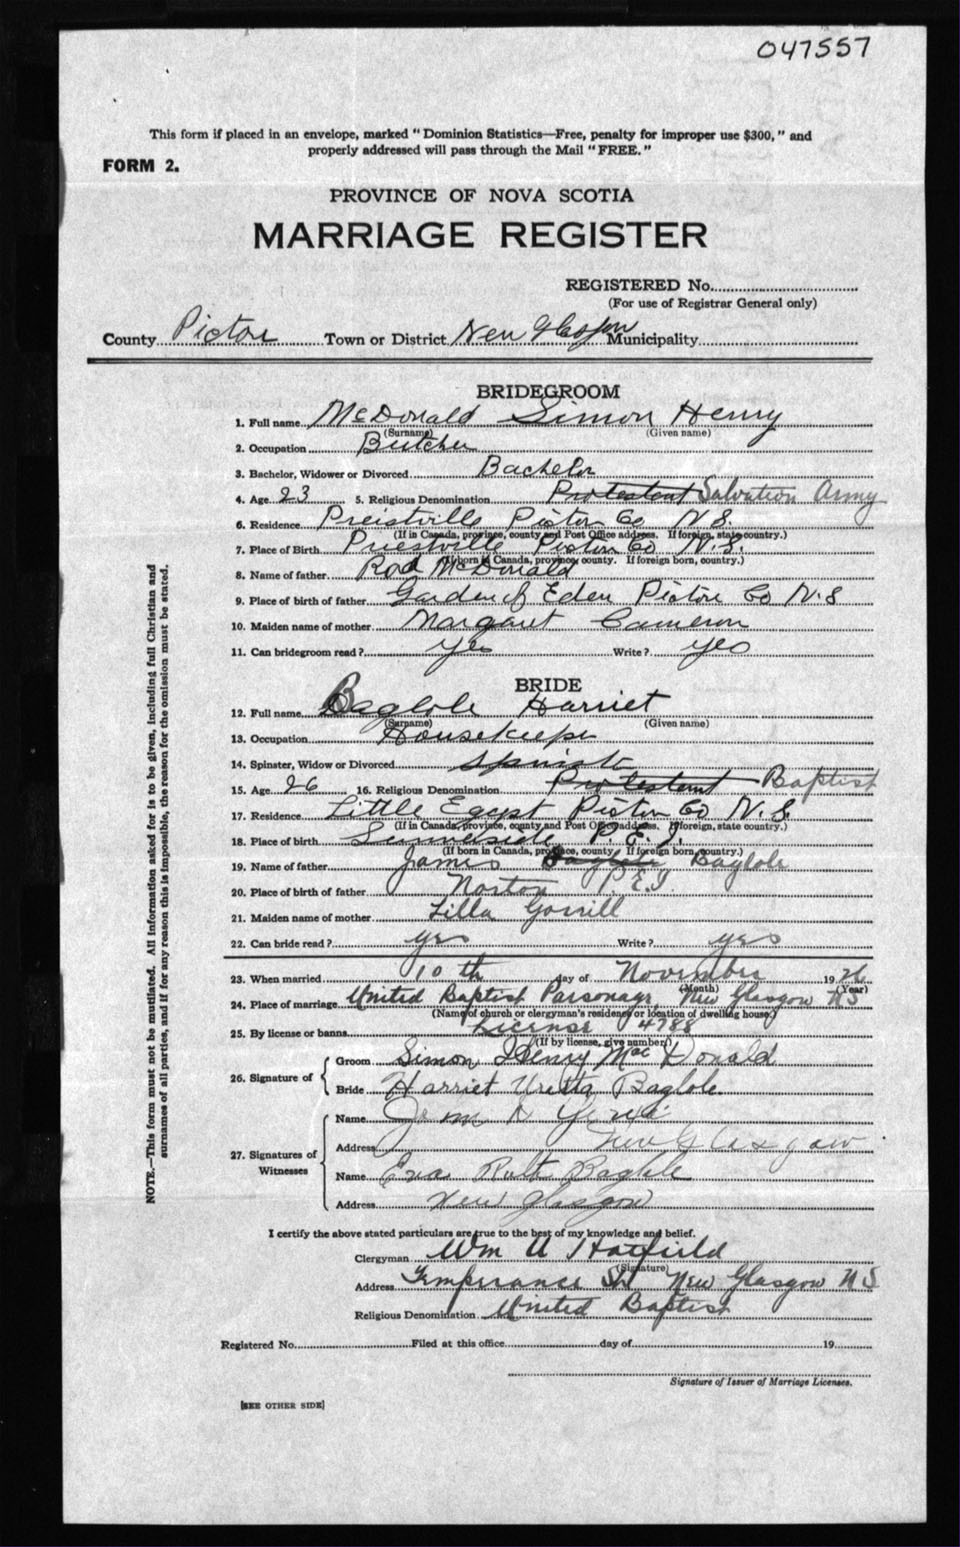 047557
This form if placed in an envelope, marked "Dominion Statistics—Free, penalty for improper use $300," and
properly addressed will pass through the Mail "FREE."
FORM 2.
PROVINCE OF NOVA SCOTIA
MARRIAGE REGISTER
REGISTERED No.
(For use of Registrar General only)
County Pictou Town or District New Glasgow Municipality
BRIDEGROOM
1. Full name McDonald Simon Henry
(Surname) (Given name)
2. Occupation Butcher
3. Bachelor, Widower or Divorced Bachelor
4. Age 23 5. Religious Denomination Protestant Salvation Army
6. Residence Preistville Pictou Co N.S.
(If in Canada, province, county and Post Office address. If foreign, state country.)
7. Place of Birth Priestville Pictou Co N.S.
(If born in Canada, province, county. If foreign born, country.)
8. Name of father Rod McDonald
9. Place of birth of father Garden of Eden Pictou Co N.S
10. Maiden name of mother Margaret Cameron
11. Can bridegroom read? Yes Write? yes
BRIDE
12. Full name Baglole Harriet
(Surname) (Given name)
13. Occupation Housekeeper
14. Spinster, Widow or Divorced Spinster
15. Age 26 16. Religious Denomination Protestant Baptist
17. Residence Little Egypt Pictou Co N.S.
(If in Canada, province, county and Post Office address. If foreign, state country.)
18. Place of birth Summerside P.E.I.
(If born in Canada, province, county. If foreign born, country.)
19. Name of father James Baglole Baglole
20. Place of birth of father Norton P.E.I.
21. Maiden name of mother Lilla Gorrill
22. Can bride read? yes Write? yes
23. When married 10th day of November 1926
(Month) (Year)
24. Place of marriage United Baptist Parsonage, New Glasgow NS
(Name of church or clergyman's residence or location of dwelling house)
25. By license or banns License 4788
(If by license, give number)
26. Signature of
Groom Simon Henry MacDonald
Bride Harriet Uretta Baglole.
27. Signatures of Witnesses
Name
Address New Glasgow
Name Eva Ruth Baglole
Address New Glasgow
I certify the above stated particulars are true to the best of my knowledge and belief.
Clergyman Wm U Hatfield
(Signature)
Address Temperance St. New Glasgow N.S.
Religious Denomination United Baptist
Registered No. Filed at this office day of 19
Signature of Issuer of Marriage Licenses.
[SEE OTHER SIDE]
NOTE.—This form must not be mutilated. All information asked for is to be given, including full Christian and
surnames of all parties, and if for any reason this is impossible, the reason for the omission must be stated.